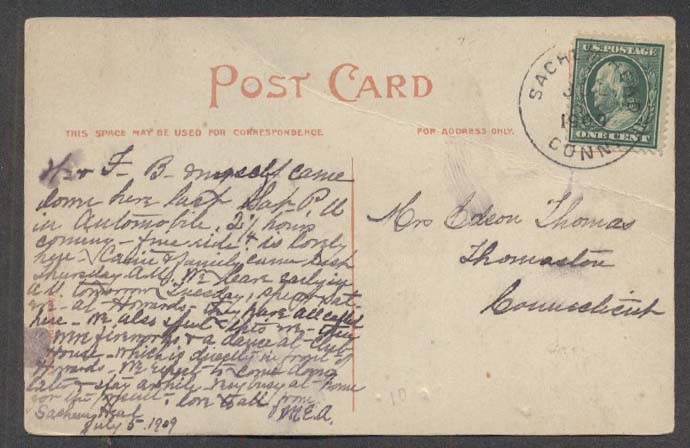 POST CARD
THIS SPACE MAY BE USED FOR CORRESPONDENCE.
FOR ADDRESS ONLY.
U.S. POSTAGE
ONE CENT
SACHEM HEAD
1909
CONN
Mrs Edson Thomas
Thomaston
Connecticut
F- B- & myself came
down here last Sat P.M
in Automobile. 2½ hours
coming - fine ride. & is lovely
here - & family came last
Thursday A.M. We leave early in
A.M. tomorrow Tuesday, spent Sat
eve at Howards - they have all called
here - We also spent eve - they
were fireworks & a dance at Club
House - which is directly in front of
Howards - We expect to come down
later & stay awhile - Very busy at home
for the present - love to all from
Sachems Head M.E.A.
July 5 - 1909